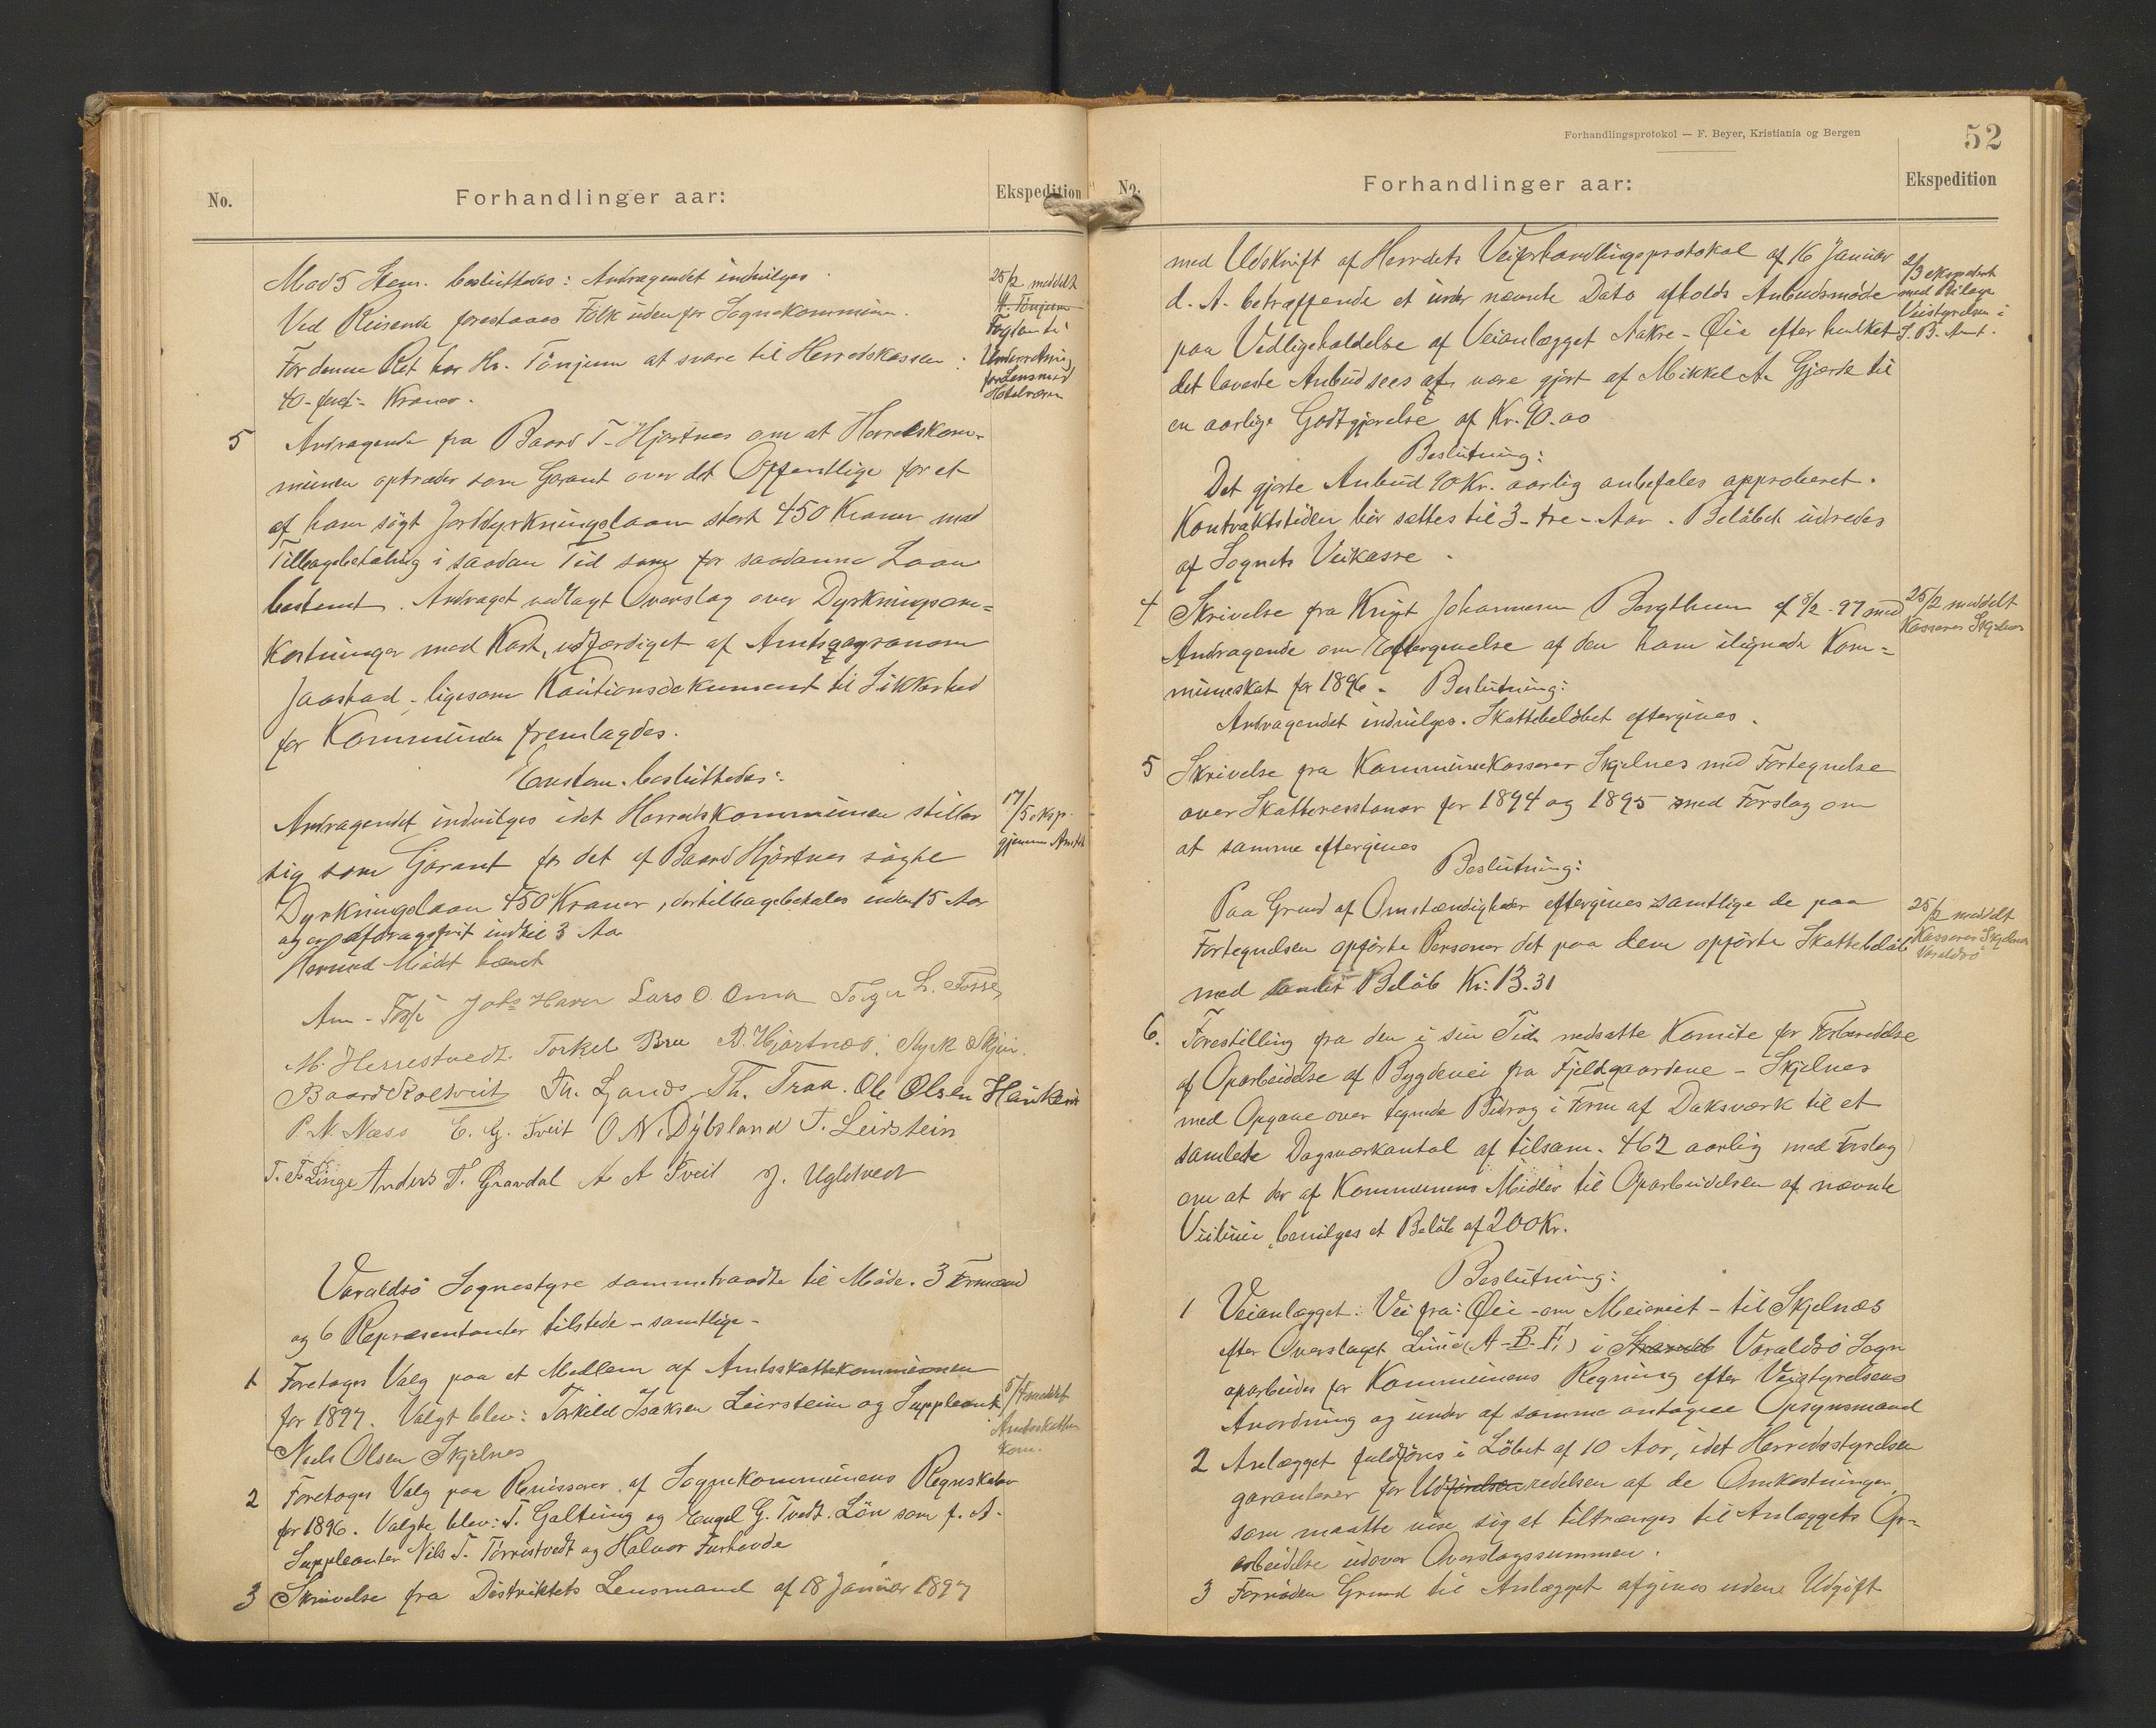 No.
Forhandlinger aar:
Ekspedition
Med 5 Stem. besluttedes: Andragendet indvilges.
Ved Reisende forstaaes Folk udenfor Sognekommunen.
For denne Ret har Hr. Tönjum at svare til Herredskassen:
40 - førti - Kroner.
25/2 meddelt
H. Tönjum
Fogden til
Underretning
for Lensmand
5 Andragende fra Baard T. Hjartnes om at Herredskom-
munen optræder som Garant over det Offentlige for et
af ham sögt Jorddyrkningslaan stort 450 Kroner med
Tilbagebetaling i saadan Tid som for saadanne Laan
bestemt. Andraget vedlagt Overslag over Dyrkningsom=
kostninger med Kart, udfærdiget af Amtsagronom
Jaastad - ligesom Kautionsdokument til Sikkerhed
for Kommunen fremlagdes.
Enstem. besluttedes:
Andragendet indvilges idet Herredskommunen stiller
sig som Garant for det af Baard Hjartnes sögte
Dyrkningslaan 450 Kroner, der tilbagebetales inden 15 Aar
og er afdragsfrit indtil 3 Aar
Hermed Mödet hævet
17/5 eksp.
gjennem Amtet
Am. Fosse Johs Haver Lars O. Oma Torger L. Fosse
M. Herrestvedt Torkel Bru B. Hjartnes. Styrk Skjeie.
Baard Rolstveit Th. Lyands Th. Traa. Ole Olsen Haukeniss
P. N. Næss E. G. Tveit O N. Dybsland T. Leirstein
T. T. Linge Anders T. Gravdal A A Tveit J. Ugletvedt
Varaldsö Sognestyre sammetraadte til Möde. 3 Formænd
og 6 Repræsentanter tilstede - samtlige -
1 Foretoges Valg paa et Medlem af Amtsskattekommissionen
for 1897. Valgt blev: Torkild Isaksen Leirstein og Suppleant
Niels Olsen Skjelnes
5/4 meddelt
Amtsskatte
kom.
2 Foretoges Valg paa Revisorer af Sognekommunens Regnskaber
for 1896. Valgte blev: T. Galtung og Engel G. Tvedt. Lön som f. A.
Suppleanter Nils T. Törrestvedt og Halvor Furhovde
3 Skrivelse fra Distriktets Lensmand af 18 Januar 1897
Forhandlingsprotokol — F. Beyer, Kristiania og Bergen
52
No.
Forhandlinger aar:
Ekspedition
med Udskrift af Herredets Veiforhandlingsprotokol af 16 Januar
d. A. betræffende et under nævnte Dato afholdt Anbudsmöde
paa Vedligeholdelse af Veianlægget Nakre - Øie efter hvilket
det laveste Anbud sees at være gjort af Mikkel A. Gjerde til
en aarlige Godtgjörelse af Kr. 90.00
2/3 ekspedert
med Bilage
Veistyrelsen i
S. B. Amt.
Beslutning:
Det gjorte Anbud 90 Kr. aarlig anbefales approberet.
Kontraktstiden bör sættes til 3 - tre - Aar. Belöbet udredes
af Sognets Veikasse.
4 Skrivelse fra Knut Johannesen Bergthun af 8/2-97 med
Andragende om Eftergivelse af den ham ilignede Kom=
muneskat for 1896. Beslutning:
Andragendet indvilges. Skattebelöbet eftergives.
25/2 meddelt
Kasserer Skjelnes
5 Skrivelse fra Kommunekasserer Skjelnes med Fortegnelse
over Skatterestancer for 1894 og 1895 med Forslag om
at samme eftergives
Beslutning:
Paa Grund af Omstændigheder eftergives samtlige de paa
Fortegnelsen opförte Personer det paa dem opförte Skattebelöb
med samlet Belöb Kr. 13.31
25/2 meddelt
Kasserer Skjelnes
Varaldsö
6. Forestilling fra den i sin Tid nedsatte Komite for Forberedelse
af Oparbeidelse af Bygdevei fra Fjeldgaardene - Skjelnes
med Opgave over tegnede Bidrag i Form af Daksværk til et
samlede Dagsværkantal af tilsam. 462 aarlig med Forslag
om at der af Kommunens Midler til Oparbeidelsen af nævnte
Veilinie, bevilges et Belöb af 200 Kr.
Beslutning:
1 Veianlægget: Vei fra: Øie - om Meieriet - til Skjelnæs
efter Overslaget Linie (A-B-F.) i Strandeb Varaldsö Sogn
oparbeides for Kommunens Regning efter Veistyrelsens
Anordning og under af samme antagne Opsynsmand
2 Anlægget fuldföres i Löbet af 10 Aar, idet Herredsstyrelsen
garanterer for Udförelsen redelsen af de Omkostninger,
som maatte vise sig at tiltrænges til Anlæggets Op=
arbeidelse udover Overslagssummen.
3 Fornöden Grund til Anlægget afgives uden Udgift